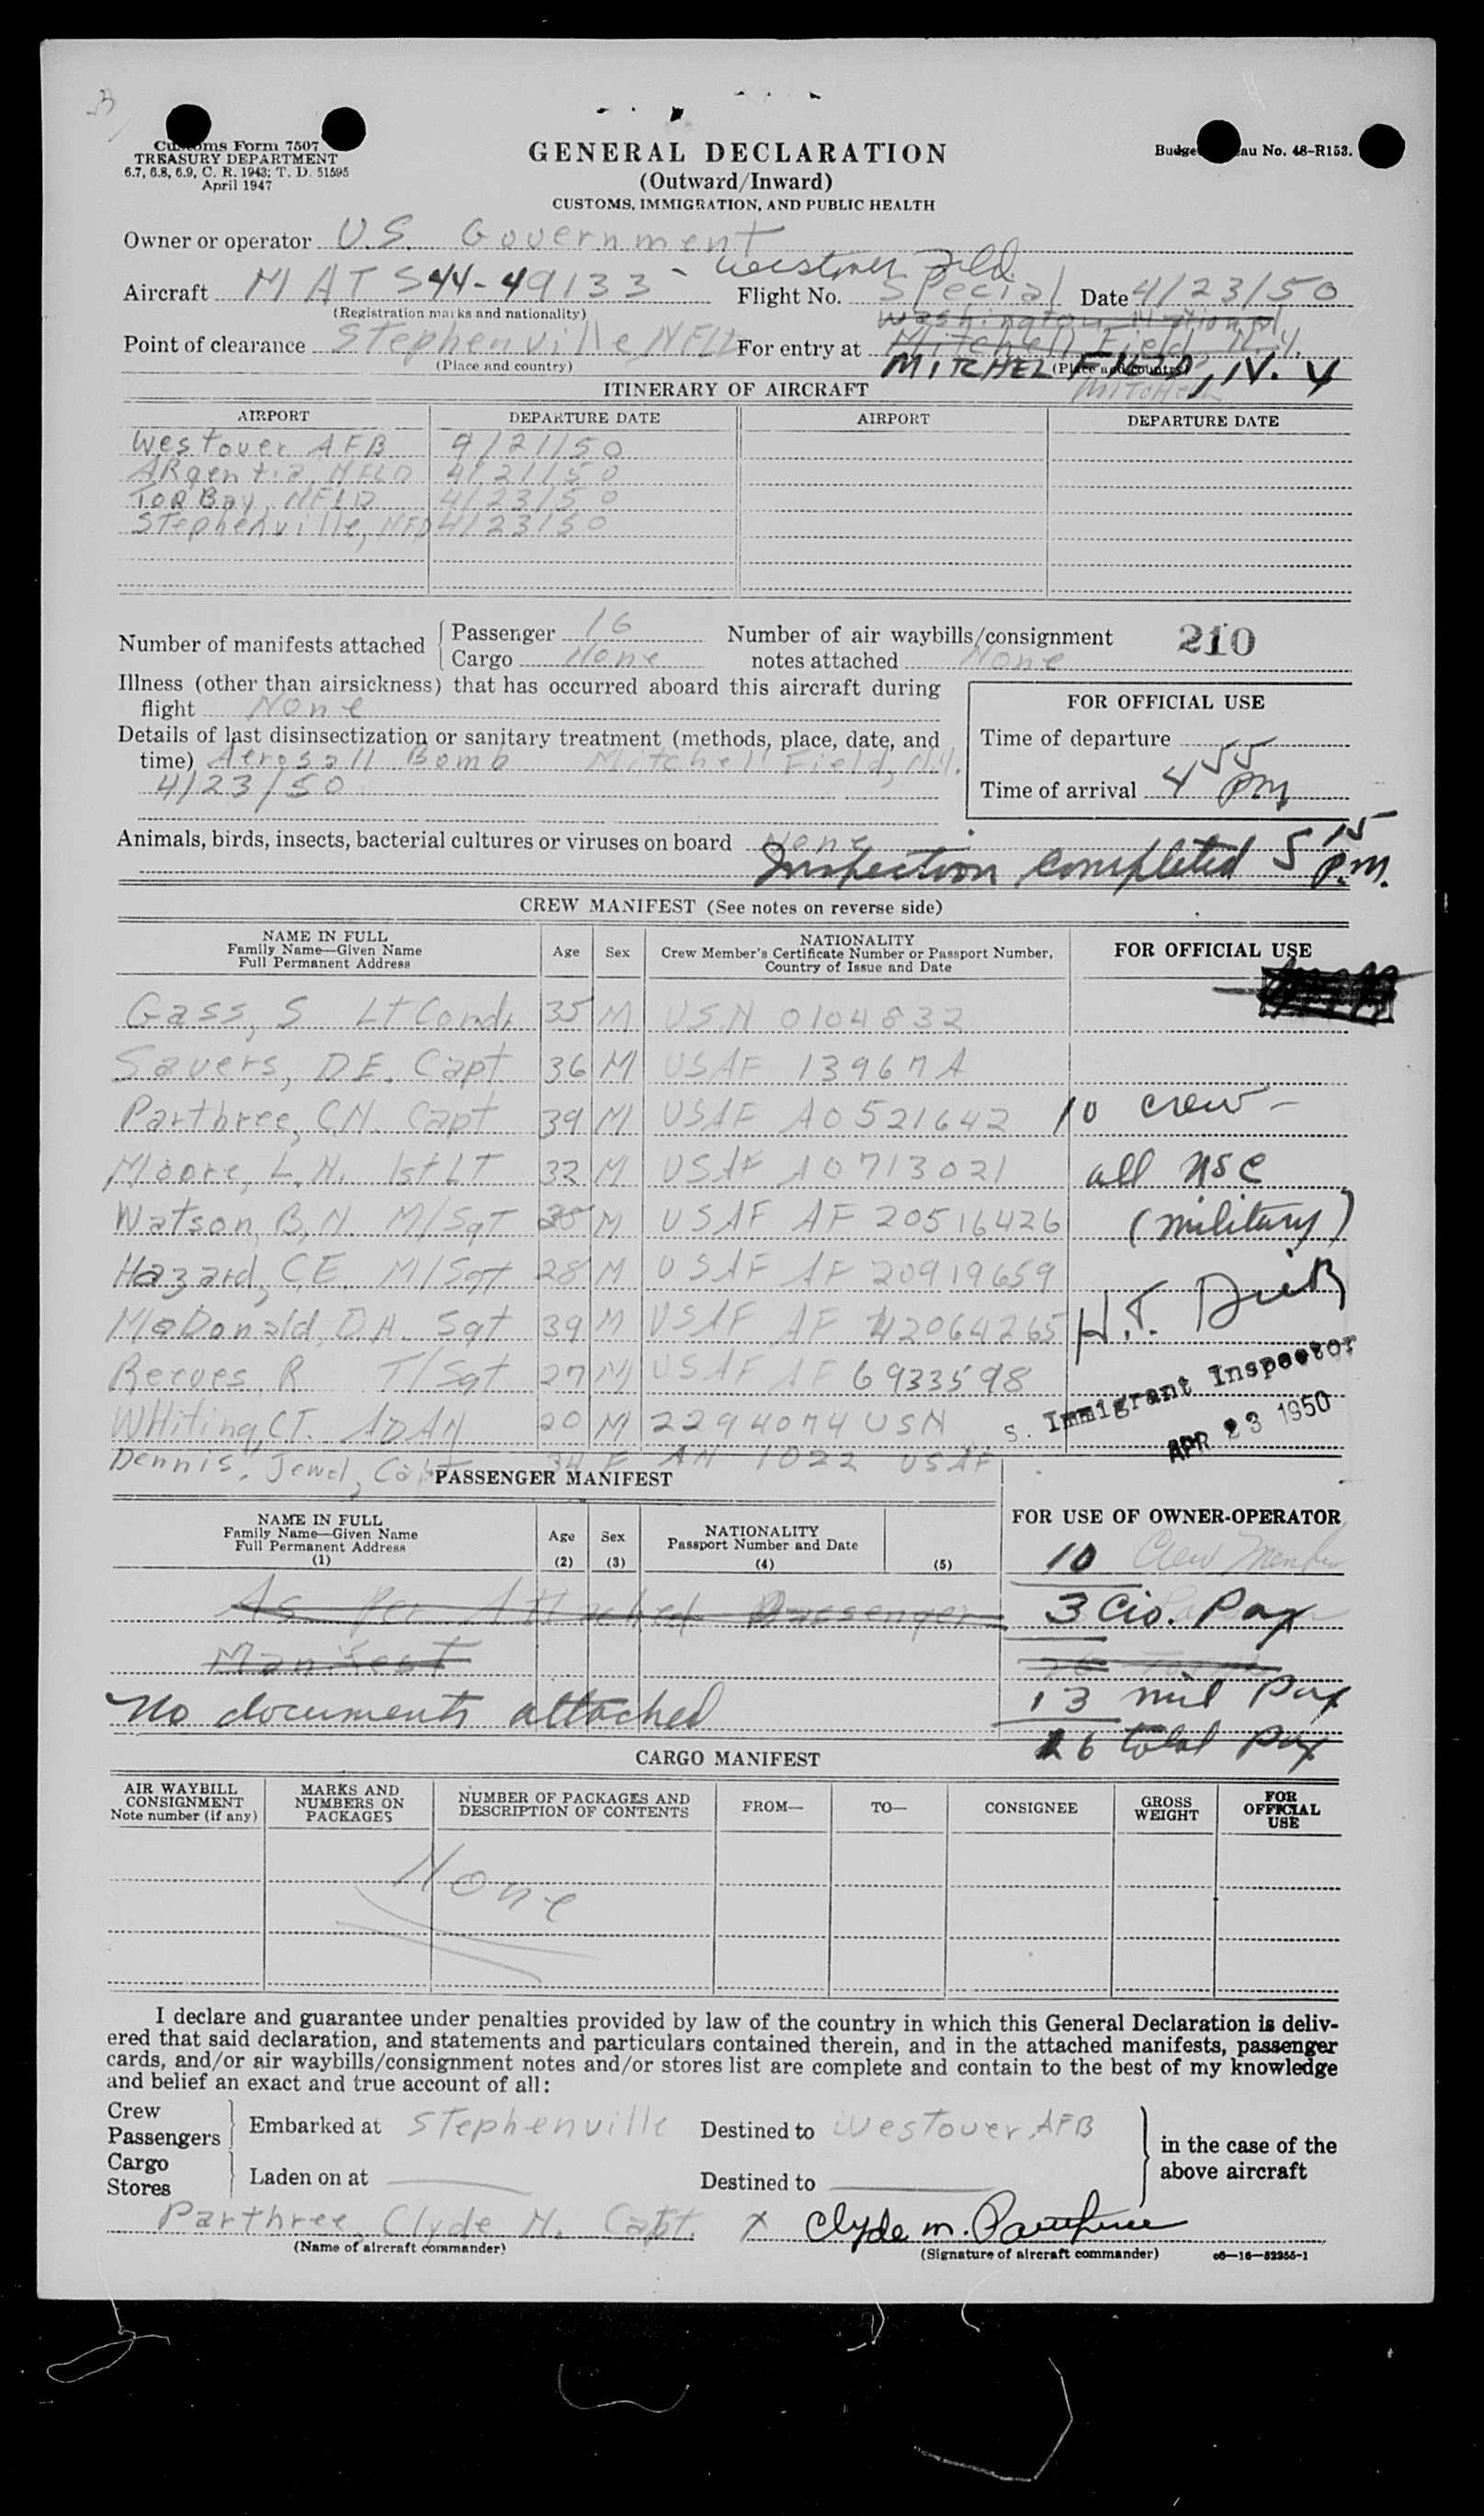 Customs Form 7507
TREASURY DEPARTMENT
6.7, 6.8, 6.9, C. R. 1943; T. D. 51595
April 1947
GENERAL DECLARATION
(Outward/Inward)
CUSTOMS, IMMIGRATION, AND PUBLIC HEALTH
Budget Bureau No. 48-R153.
Owner or operator U.S. Government
Westover Fld.
Aircraft MATS 44-49133 - Flight No. Special Date 4/23/50
(Registration marks and nationality)
Washington National
Point of clearance Stephenville NFLD For entry at Mitchell Field, N.Y.
(Place and country) MITCHEL FIELD, N. Y (Place and country)
MITCHELL
ITINERARY OF AIRCRAFT
AIRPORT DEPARTURE DATE AIRPORT DEPARTURE DATE
Westover AFB 4/21/50
ARgentia, NFLD 4/21/50
Tor Bay, NFLD 4/23/50
Stephenville, NFD 4/23/50
Number of manifests attached Passenger 16 Number of air waybills/consignment 210
Cargo None notes attached None
Illness (other than airsickness) that has occurred aboard this aircraft during
flight None
FOR OFFICIAL USE
Details of last disinsectization or sanitary treatment (methods, place, date, and
time) Aerosall Bomb Mitchell Field, N.Y.
4/23/50
Time of departure
Time of arrival 4 55 pm
Animals, birds, insects, bacterial cultures or viruses on board None
Inspection completed 5 15 P.M.
CREW MANIFEST (See notes on reverse side)
NAME IN FULL
Family Name—Given Name
Full Permanent Address
Age Sex
NATIONALITY
Crew Member's Certificate Number or Passport Number,
Country of Issue and Date
FOR OFFICIAL USE
Gass, S Lt Comdr 35 M USN 0104832
Savers, D.E. Capt 36 M USAF 13967A
Parthree, C.N. Capt 39 M USAF AO521642 10 crew -
Moore, L.N. 1st LT 32 M USAF AO713021 all USC
Watson, B.N. M/SgT 35 M USAF AF 20516426 (military)
Hazard, CE. M/Sgt 28 M USAF AF 20919659
McDonald, D.H. Sgt 39 M USAF AF 42064265 H.T.
Reeves, R T/Sgt 27 M USAF AF 6933598
S. Immigrant Inspector
WHiting, CT. ADAN 20 M 2294074 USN
APR 23 1950
Dennis, Jewel, Capt 34 F AN 1022 USAF
PASSENGER MANIFEST
NAME IN FULL
Family Name—Given Name
Full Permanent Address
(1)
Age
(2)
Sex
(3)
NATIONALITY
Passport Number and Date
(4) (5)
FOR USE OF OWNER-OPERATOR
10 Crew Member
As Per Attached Passenger 3 Civ. Pax
Manifest 26
13 mil Pax
No documents attached
26 total Pax
CARGO MANIFEST
AIR WAYBILL
CONSIGNMENT
Note number (if any)
MARKS AND
NUMBERS ON
PACKAGES
NUMBER OF PACKAGES AND
DESCRIPTION OF CONTENTS
FROM— TO— CONSIGNEE
GROSS
WEIGHT
FOR
OFFICIAL
USE
None
I declare and guarantee under penalties provided by law of the country in which this General Declaration is deliv-
ered that said declaration, and statements and particulars contained therein, and in the attached manifests, passenger
cards, and/or air waybills/consignment notes and/or stores list are complete and contain to the best of my knowledge
and belief an exact and true account of all:
Crew
Passengers Embarked at Stephenville Destined to Westover AFB
in the case of the
above aircraft
Cargo
Stores Laden on at Destined to
Parthree, Clyde N. Capt. X Clyde M. Parthree
(Name of aircraft commander) (Signature of aircraft commander) c6—16—52255-1